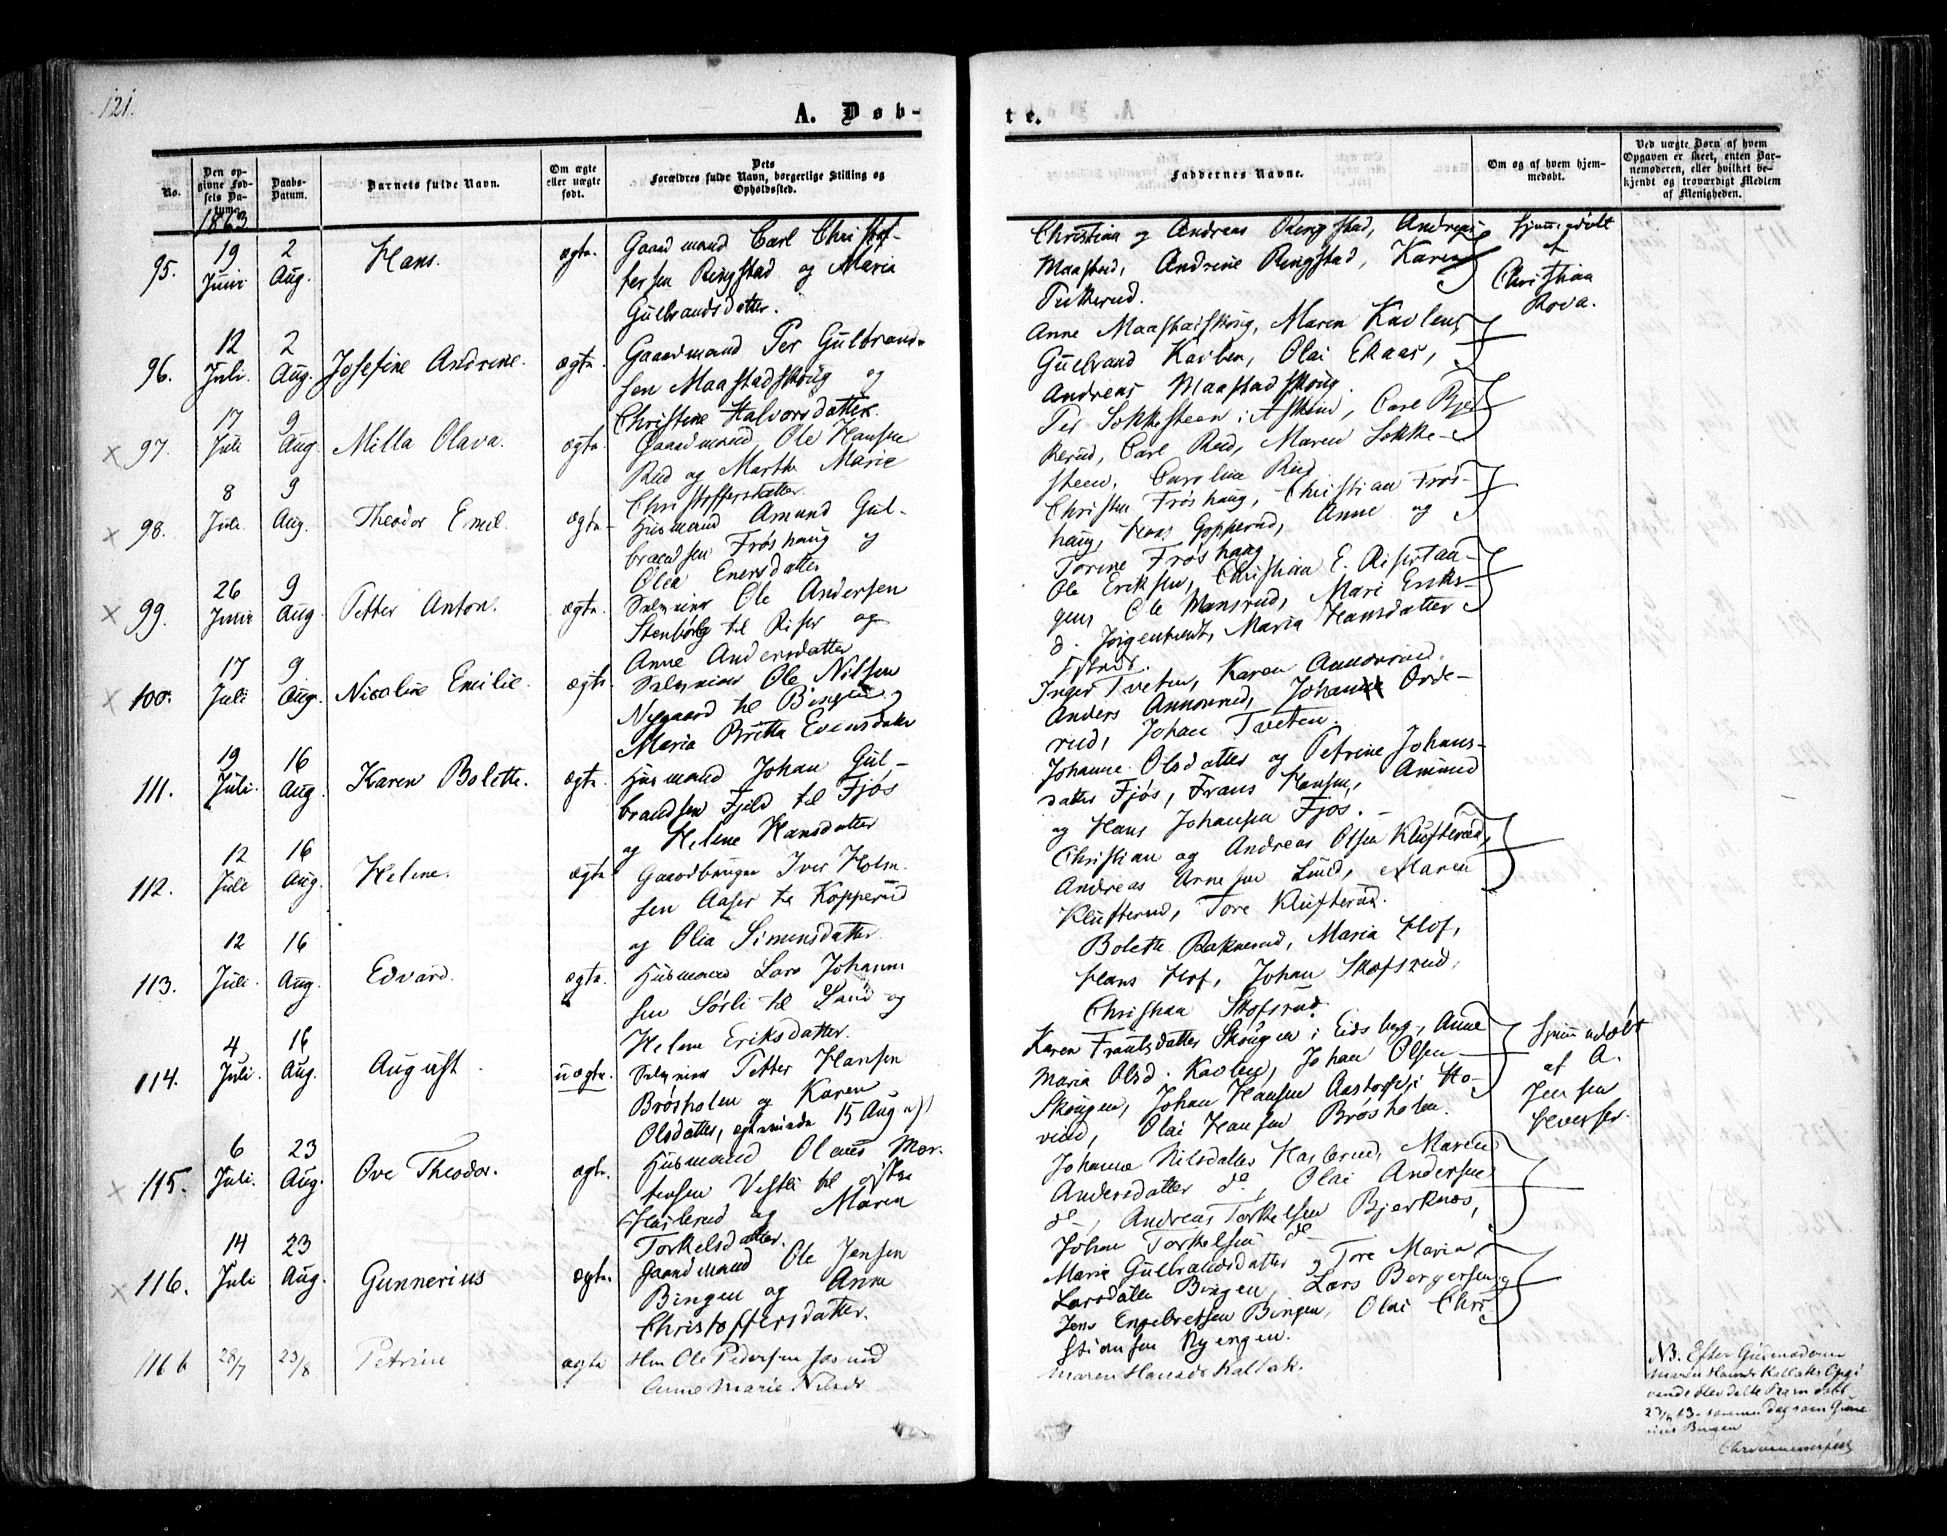 121.
A. Døb-
te.
No.
Den op-
givne Fød-
sels Da-
tum.
Daabs-
Datum.
Barnets fulde Navn.
Om ægte
eller uægte
født.
Dets
Forældres fulde Navn, borgerlige Stilling og
Opholdssted.
Faddernes Navne.
Om og af hvem hjem-
medøbt.
Ved uægte Børn af hvem
Opgaven er skeet, enten Bar-
nemoderen, eller hvilket be-
kjendt og troværdigt Medlem
af Menigheden.
1863
95.
19
Juni
2
Aug.
Hans.
ægte.
Gaardmand Carl Christof-
fersen Ringstad og Maria
Gulbrandsdatter.
Christian og Andreas Ringstad, Andreas
Maastad, Andrine Ringstad, Karen
Tukkerud.
Hjemmedøbt
af
Christian
Rova.
96.
12
Juli.
2
Aug.
Josefine Andrine.
ægte.
Gaardmand Per Gulbrand-
sen Maastadskoug og
Christine Halvorsdatter.
Anne Maastadskoug, Maren Kavlen,
Gulbrand Kavlen, Olai Ekaas,
Andreas Maastadskoug.
× 97.
17
Juli
9
Aug.
Milla Olava.
ægte.
Gaardmand Ole Hansen
Rud og Marthe Marie
Christoffersdatter
Per Sokkesteen i Askim, Carl
kerud, Carl Rud, Maren Sokke-
steen, Caroline Rud.
× 98.
8
Juli
9
Aug.
Theodor Emil.
ægte-
Husmand Amund Gul-
brandsen Frøshaug og
Olea Enersdatter
Christen Frøshaug, Christian Frøs-
haug, Hans Gopperud, Anne og
Torine Frøshaug
× 99.
26
Juni
9
Aug.
Petter Anton.
ægte.
Selveier Ole Andersen
Stenbølg til Riser og
Anne Andersdatter
Ole Eriksen, Christian E.
gen, Ole Mansrud, Mari Eriks-
d. Jørgentvedt, Maria Hansdatter
× 100.
17
Juli
9
Aug.
Nicoline Emilie.
ægte
Selveier Ole Nilsen
Nygaard til Bingen og
Maria Britta Evensdatter
Inger Tveten, Karen Annonrud.
Anders Annonrud, Johan Orde-
rud, Johan Tveten.
111.
19
Juli.
16
Aug.
Karen Bolette.
ægte.
Husmand Johan Gul-
brandsen Fjeld til Fjøs
og Helene Hansdatter
Johanne Olsdatter og Petrine Johans-
datter Fjøs, Frans Hansen, Amund
og Hans Johansen Fjøs.
112.
12
Juli
16
Aug.
Helene.
ægte
Gaardbruger Iver Holm-
sen Aaser til Kopperud
og Olea Simensdatter
Christian og Andreas Olsen Klufterud,
Andreas Arnesen Lund, Maren
Klufterud, Tore Klufterud.
113.
12
Juli.
16
Aug.
Edvard.
ægte.
Husmand Lars Johann
sen Sørli til Sand og
Helene Eriksdatter.
Bolette Raknerud, Maria Hof,
Hans Hof, Johan Skofsrud,
Christian Skofsrud.
114.
4
Juli.
16
Aug.
August.
uægte.
Selveier Petter Hansen
Brøsholen og Karen
Olsdatter, 15 Aug
Karen Frantsdatter Skougen i Eidsberg, Anne
Maria Olsd. Kavlen, Johan Olsen
Skougen, Johan Hansen Aastorp i Ho-
vind, Olai Hansen Brøsholen.
Hjemmedøbt
af A.
Jensen
× 115.
6
Juli.
23
Aug.
Ove Theodor.
ægte.
Husmand Olaus Mor-
tensen Vestli til østre
Haslerud og Maren
Torkelsdatter.
Johanne Nilsdatter Haslerud, Maren
Andersdatter do, Olai Andersen
do, Andreas Torkelsen Bjerknes,
Johan Torkelsen do
× 116.
14
Juli
23
Aug.
Gunnerius
ægte.
Gaardmand Ole Jensen
Bingen og Anne
Christoffersdatter.
Maria Gulbrandsdatter og Tore Maria
Larsdatter Bingen, Lars Borgersen og
Jens Engebretsen Bingen, Olai Chri
stiansen Nyengen.
116 b
28/7
23/8
Petrine
ægte
Hm Ole Pedersen
Anne Marie Nilsdr
Maren Hansdr Kallak.
NB. Efter Gudmoderen
Maren Hansdr Kallaks Opgi
vende blev dette Barn døbt
23/8 63. samme Dag som Gunne
rius Bingen